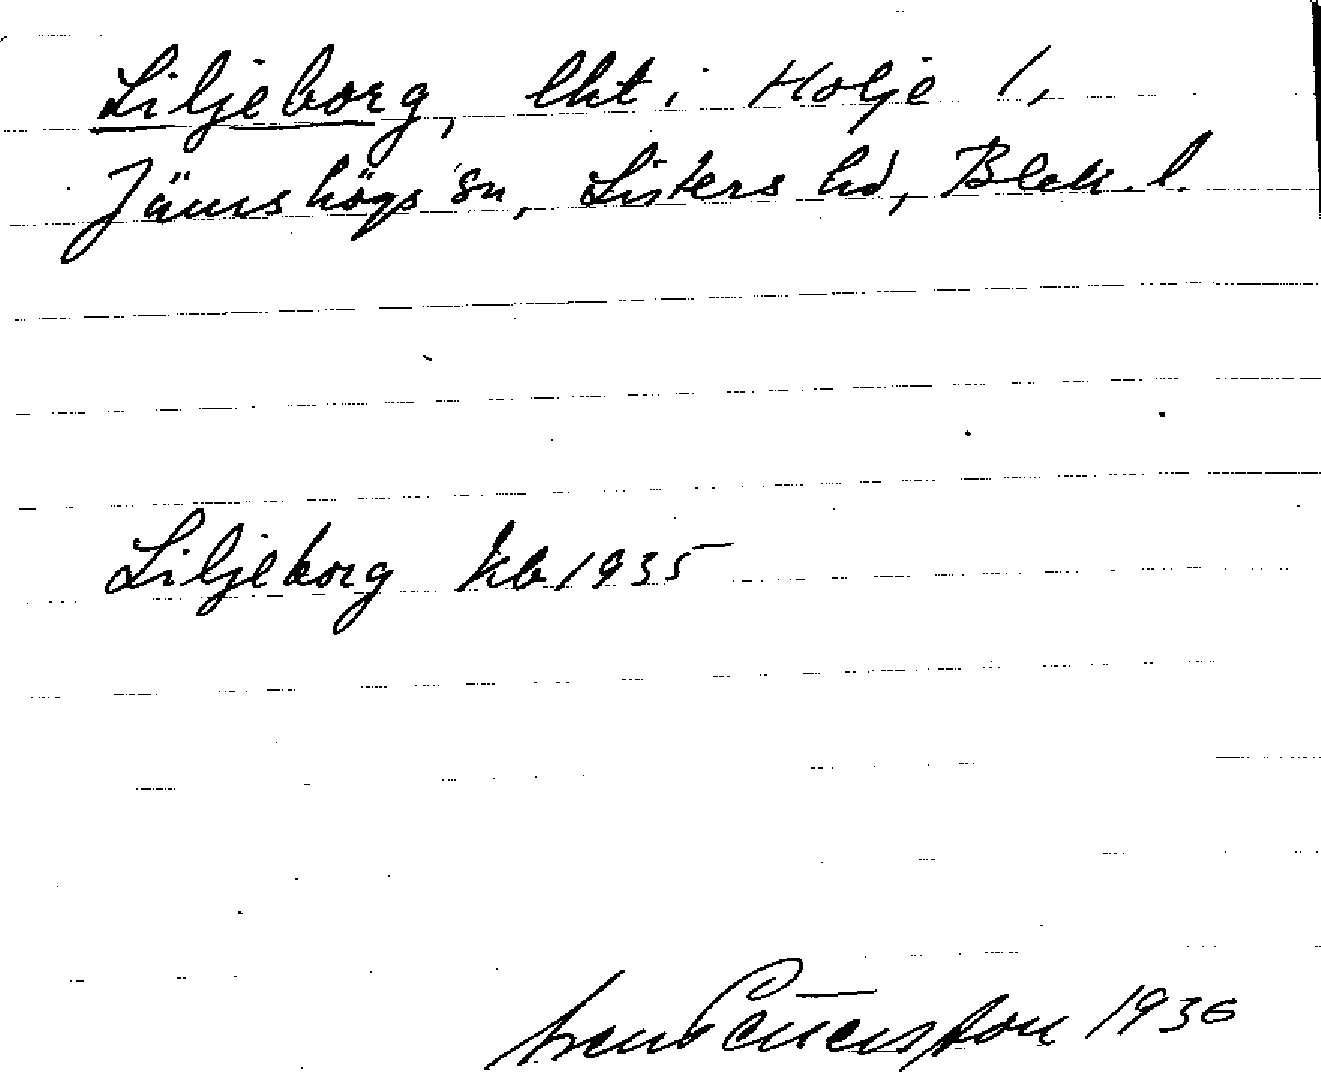 Liljeborg, lht i Holje 1,
Jämshögs sn, Listers hd, Blek. l.
Liljeborg kb 1935
1936